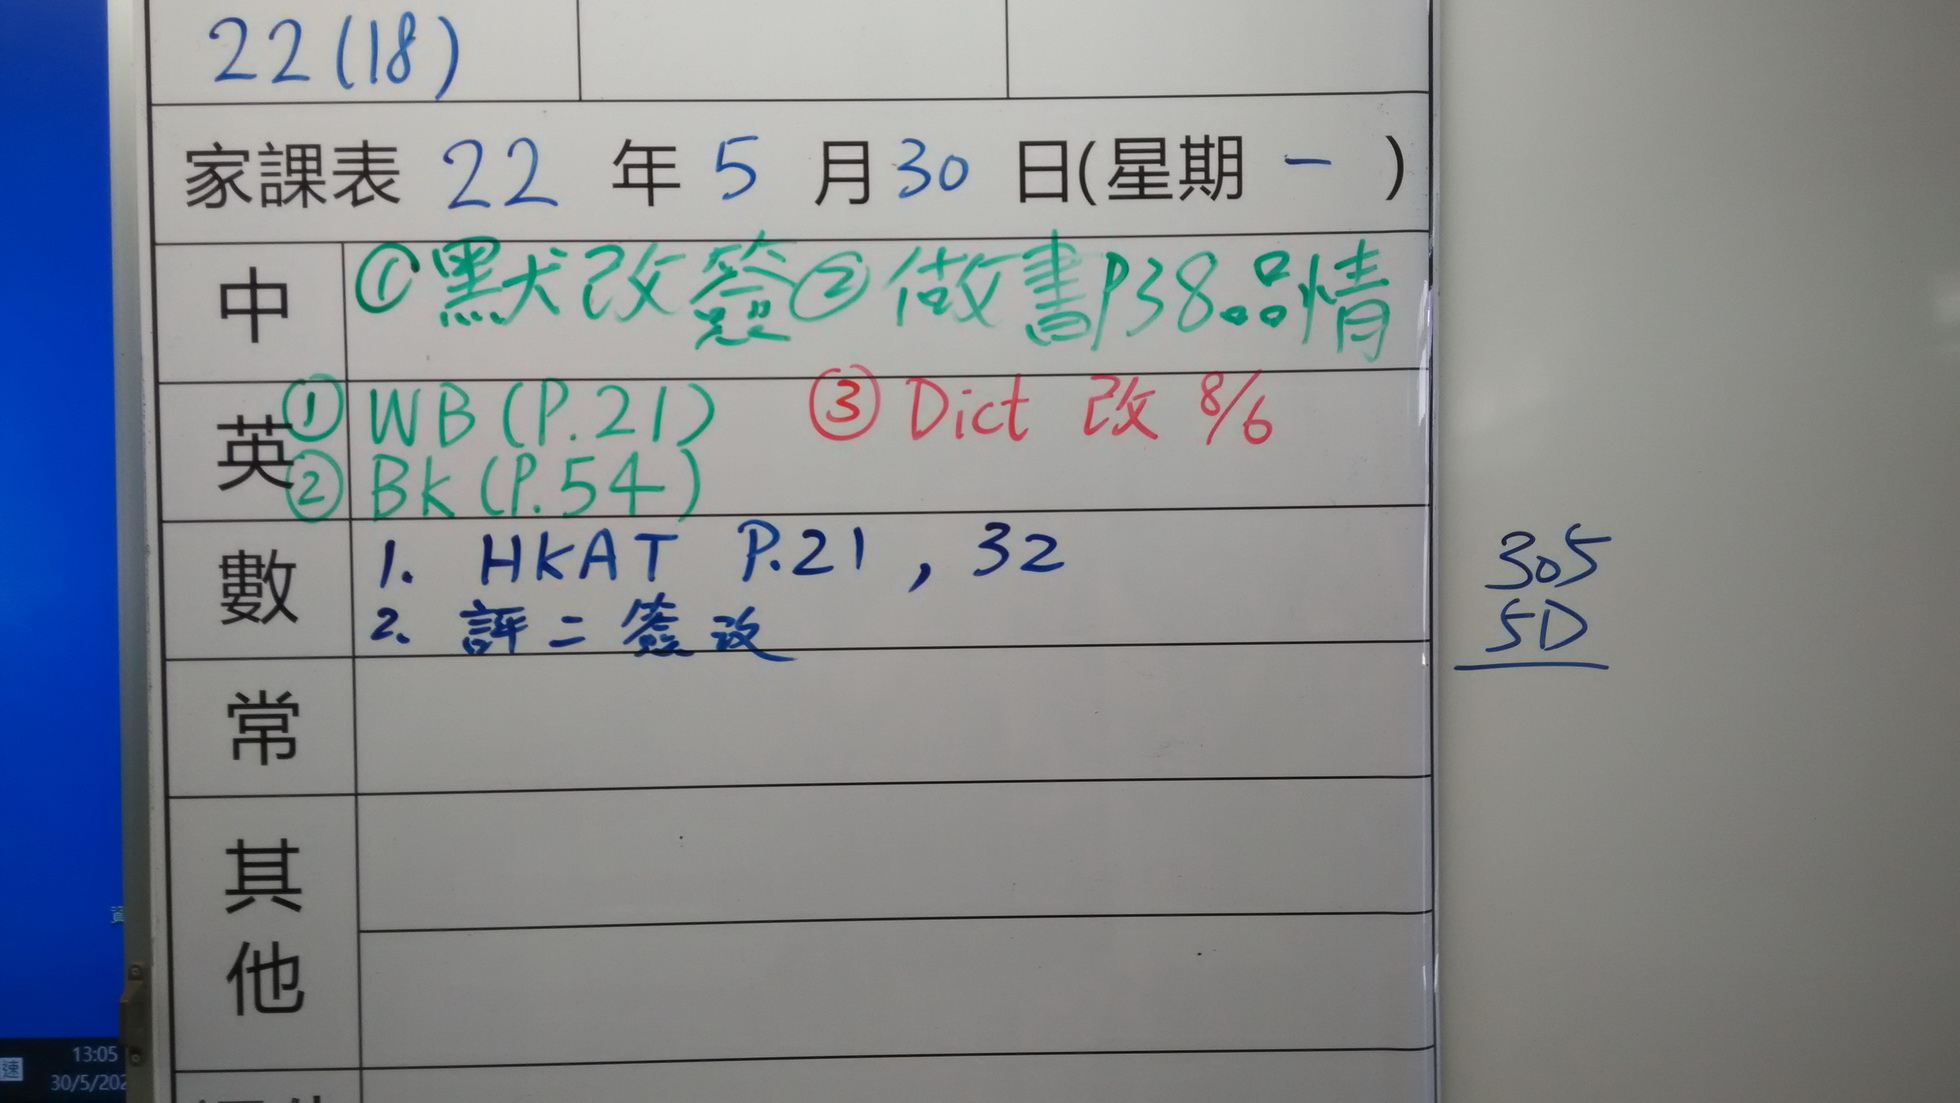 22(18)
家課表 22 年 5 月 30 日(星期 一 )
中 ①默改簽 ②做書P38品情
英 ① WB (P.21) ③ Dict 改 8/6
② BK (P.54)
數 1. HKAT P.21 , 32
2. 評二簽改
305
5D
常
其
他
速
13:05
30/5/202